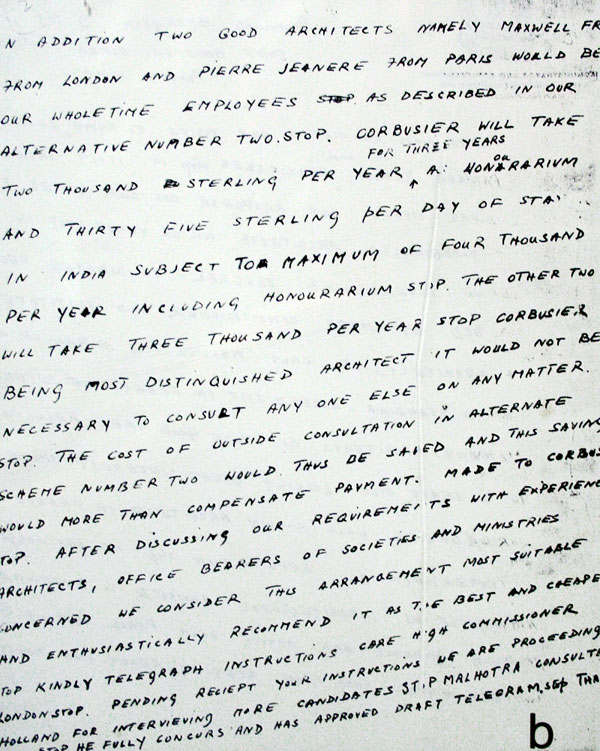 N ADDITION TWO GOOD ARCHITECTS NAMELY MAXWELL FR
FROM LONDON AND PIERRE JEANERE FROM PARIS WOULD BE
OUR WHOLETIME EMPLOYEES STOP. AS DESCRIBED IN OUR
ALTERNATIVE NUMBER TWO.STOP. CORBUSIER WILL TAKE
FOR THREE YEARS
TWO THOUSAND STERLING PER YEAR HONOURARIUM
AND THIRTY FIVE STERLING PER DAY OF STAY
IN INDIA SUBJECT TO MAXIMUM OF FOUR THOUSAND
PER YEAR INCLUDING HONOURARIUM STOP. THE OTHER TWO
WILL TAKE THREE THOUSAND PER YEAR STOP CORBUSIER
BEING MOST DISTINQUISHED ARCHITECT IT WOULD NOT BE
NECESSARY TO CONSULT ANY ONE ELSE ON ANY MATTER.
STOP. THE COST OF OUTSIDE CONSULTATION IN ALTERNATE
SCHEME NUMBER TWO WOULD THUS BE SAVED AND THIS SAVING
WOULD MORE THAN COMPENSATE PAYMENT. MADE TO CORBUS
TOP. AFTER DISCUSSING OUR REQUIREMENTS WITH EXPERIENC
ARCHITECTS, OFFICE BEARERS OF SOCIETIES AND MINISTRIES
CONCERNED WE CONSIDER THIS ARRANGEMENT MOST SUITABLE
AND ENTHUSIASTICALLY RECOMMEND IT AS THE BEST AND CHEAPE
TOP KINDLY TELEGRAPH INSTRUCTIONS CARE HIGH COMMISSIONER
LONDON STOP. PENDING RECIEPT YOUR INSTRUCTIONS WE ARE PROCEEDING
HOLLAND FOR INTERVIEWING MORE CANDIDATES STOP MALHOTRA CONSULTE
STOP HE FULLY CONCURS AND HAS APPROVED DRAFT TELEGRAM. THA
b